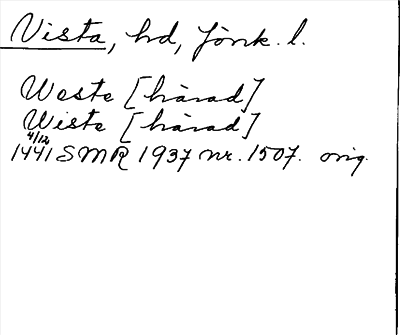 Vista, hd, Jönk. l.
Weste [härad]
Wiste [härad]
4/12
1441 SMR 1937 nr. 1507. orig.